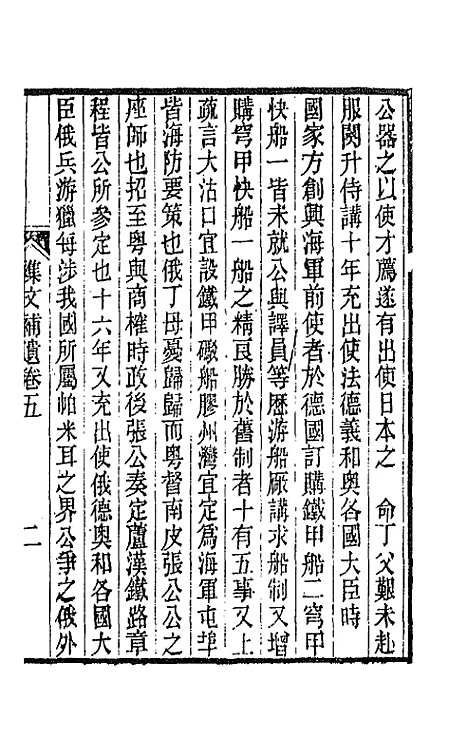 公器之以使才薦遂有出使日本之　命丁父艱未赴
服闋升侍講十年充出使法德義和奧各國大臣時
國家方創興海軍前使者於德國訂購鐵甲船二穹甲
快船一皆未就公與譯員等歷游船厰講求船制又增
購穹甲快船一船之精良勝於舊制者十有五事又上
疏言大沽口宜設鐵甲礮船膠州灣宜定爲海軍屯埠
皆海防要策也俄丁母憂歸歸而粤督南皮張公公之
座師也招至粤與商榷時政後張公奏定蘆漢鐵路章
程皆公所參定也十六年又充出使俄德奧和各國大
臣俄兵游獵每涉我國所屬帕米耳之界公爭之俄外
集文補遺卷五　二